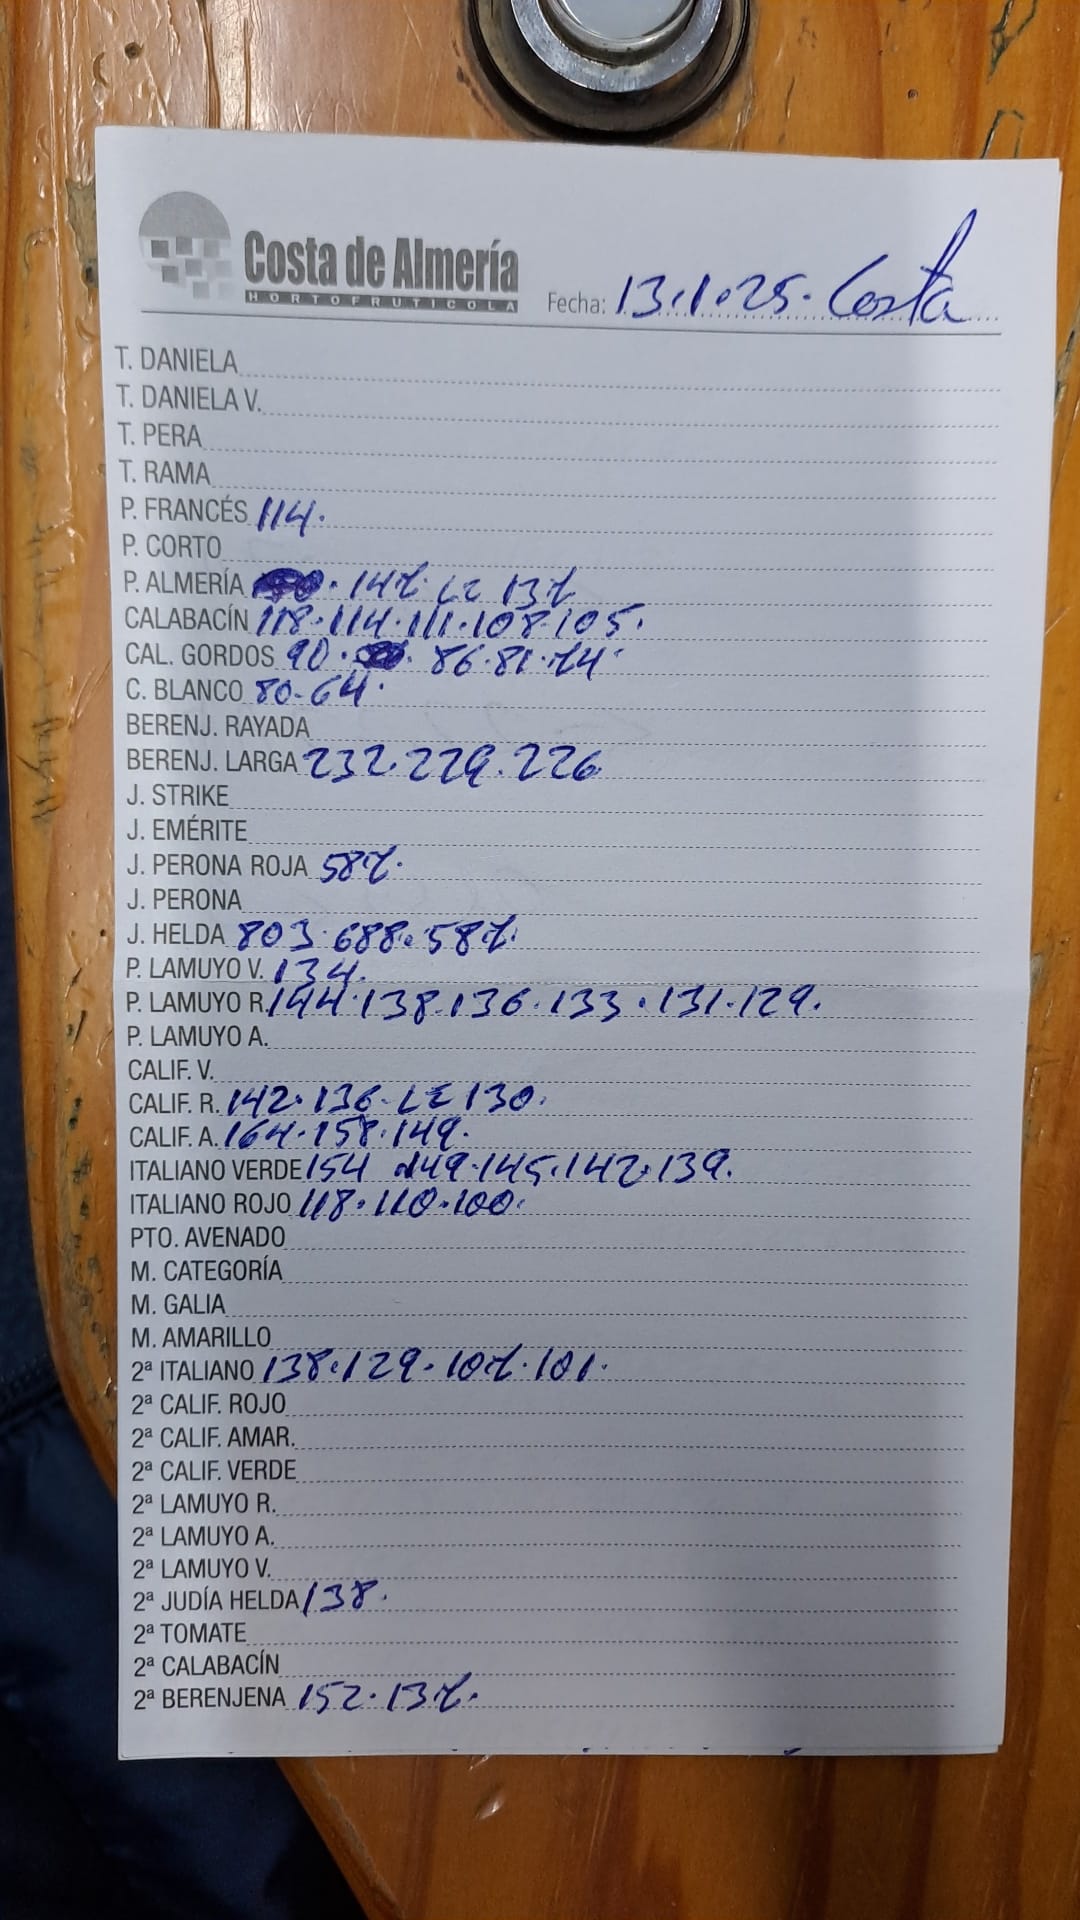 Costa de Almería
HORTOFRUTICOLA
Fecha: 13.1.25. Costa
T. DANIELA
T. DANIELA V.
T. PERA
T. RAMA
P. FRANCÉS 114.
P. CORTO
P. ALMERÍA . 147. LE 137
CALABACÍN 118.114.111.108.105.
CAL. GORDOS 90. . 86.81.74.
C. BLANCO 80.64.
BERENJ. RAYADA
BERENJ. LARGA 232.229.226
J. STRIKE
J. EMÉRITE
J. PERONA ROJA 587.
J. PERONA
J. HELDA 803.688.587.
P. LAMUYO V. 134.
P. LAMUYO R. 144.138.136.133.131.129.
P. LAMUYO A.
CALIF. V.
CALIF. R. 142.136. LE 130.
CALIF. A. 164.158.149.
ITALIANO VERDE 154 149.145.142.139.
ITALIANO ROJO 118.110.100.
PTO. AVENADO
M. CATEGORÍA
M. GALIA
M. AMARILLO
2ª ITALIANO 138.129.107.101.
2ª CALIF. ROJO
2ª CALIF. AMAR.
2ª CALIF. VERDE
2ª LAMUYO R.
2ª LAMUYO A.
2ª LAMUYO V.
2ª JUDÍA HELDA 138.
2ª TOMATE
2ª CALABACÍN
2ª BERENJENA 152.137.